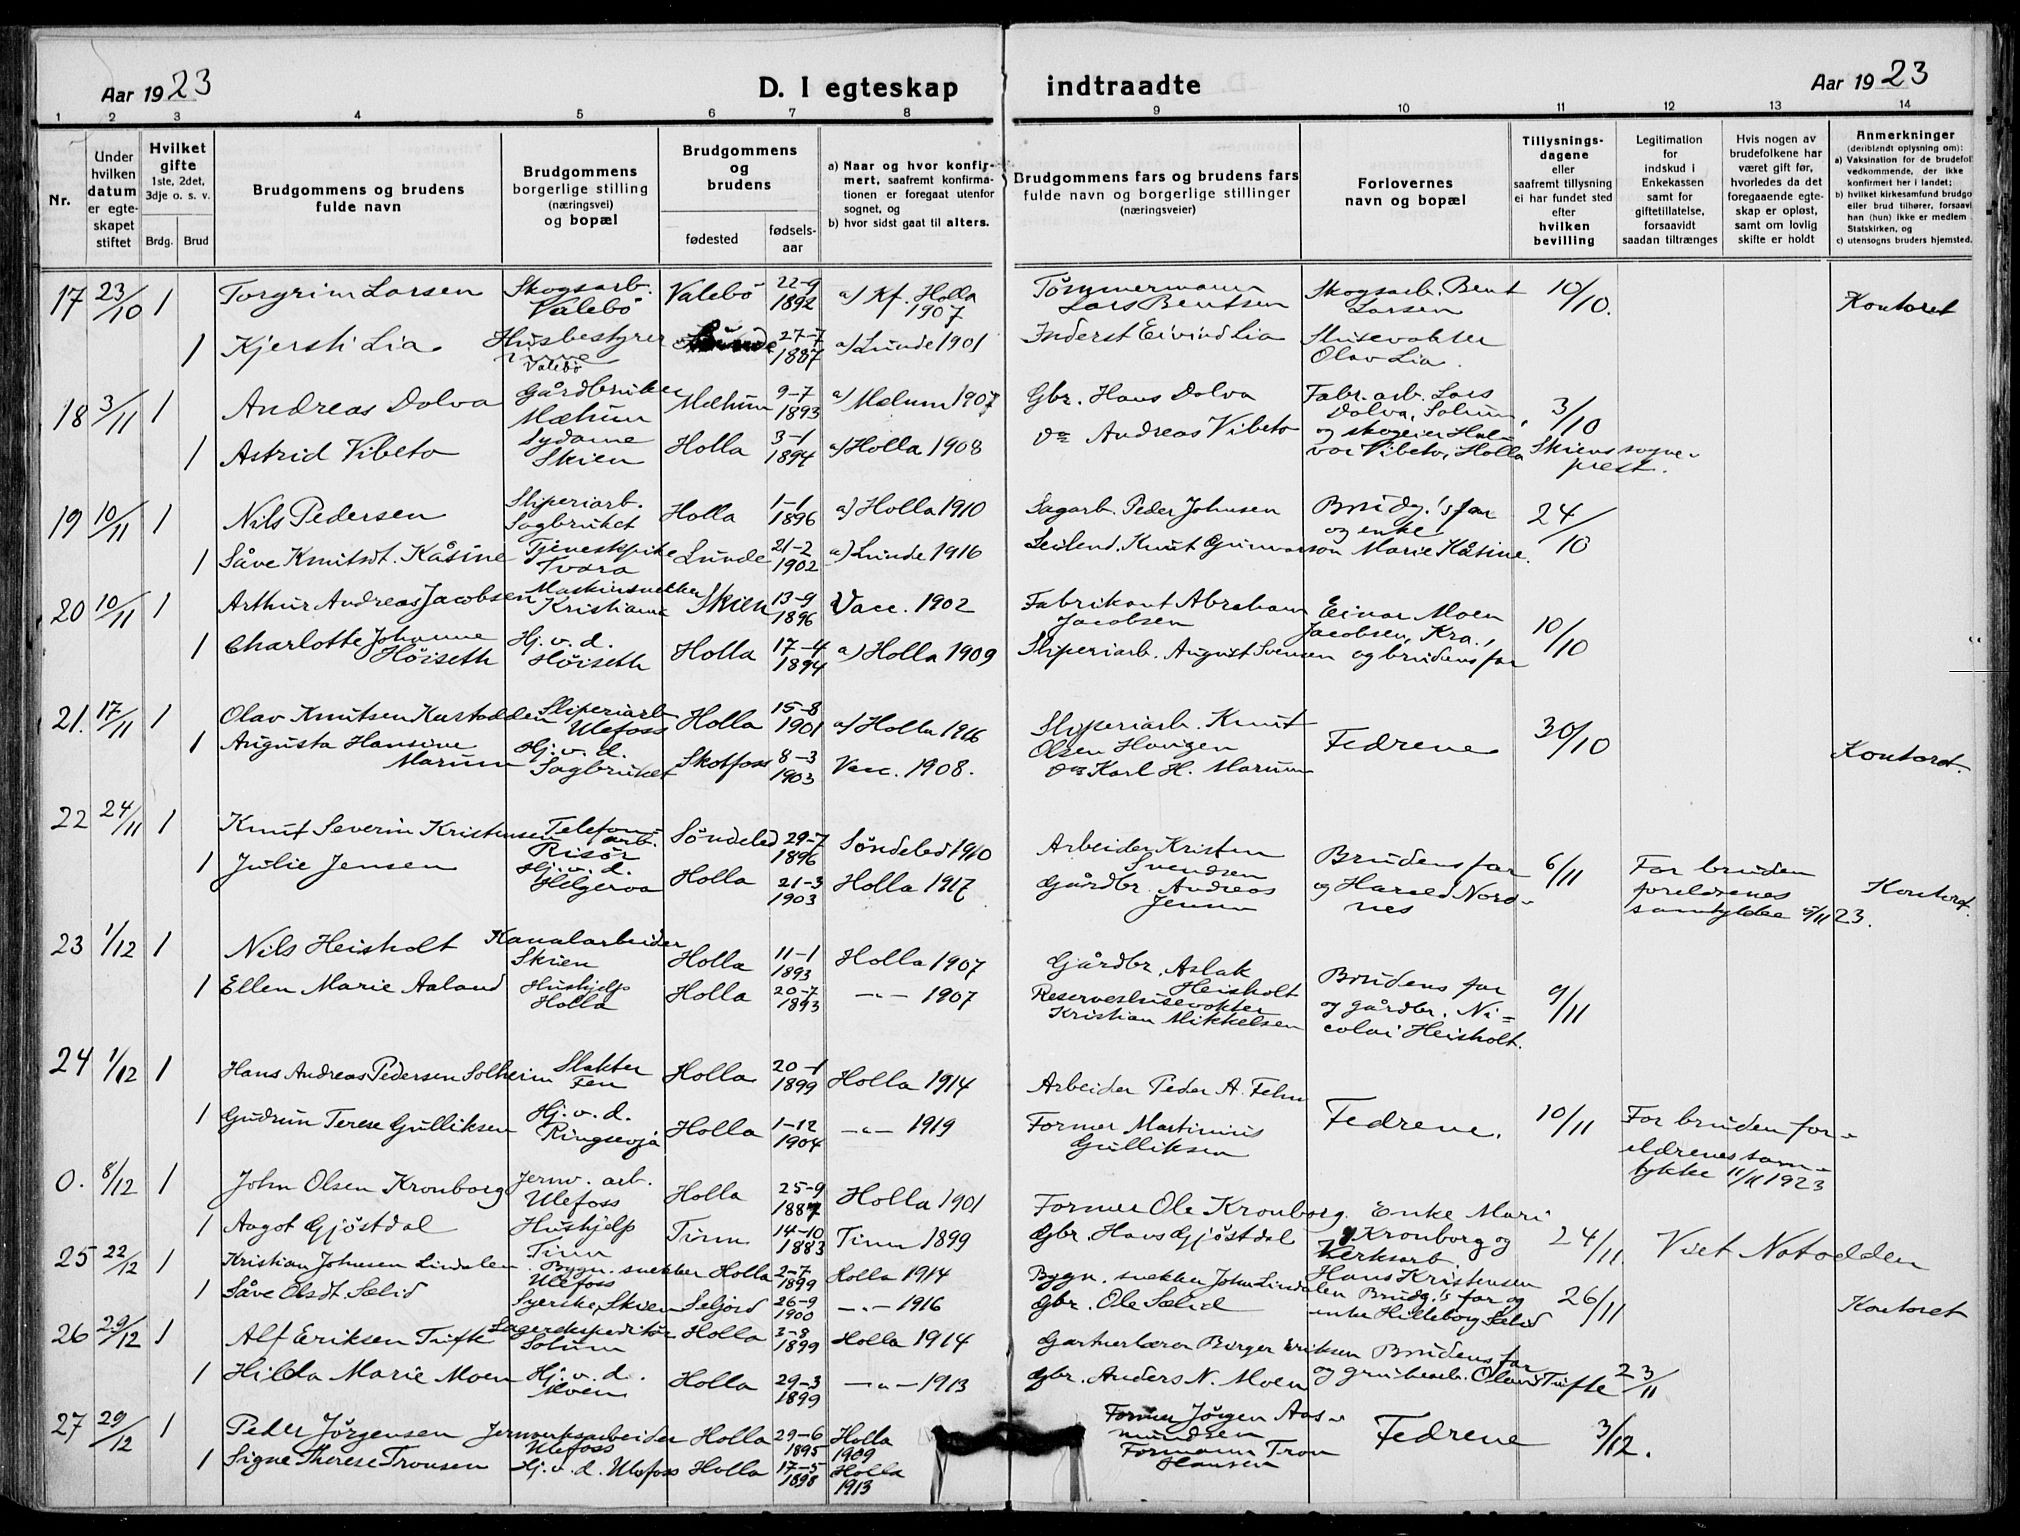 Aar 1923
D. I egteskap indtraadte
Aar 1923
1 2 3 4 5 6 7 8 9 10 11 12 13 14
Nr.
Under hvilken datum er egteskapet stiftet
Hvilket gifte
1ste, 2det, 3dje o. s. v.
Brdg. Brud
Brudgommens og brudens fulde navn
Brudgommens og brudens borgerlige stilling (næringsvei) og bopæl
Brudgommens og brudens
fødested
fødsels-aar
a) Naar og hvor konfirmert, saafremt konfirmationen er foregaat utenfor sognet, og
b) hvor sidst gaat til alters.
Brudgommens fars og brudens fars fulde navn og borgerlige stillinger
(næringsveier)
Forlovernes navn og bopæl
Tillysningsdagene eller saafremt tillysning ei har fundet sted efter hvilken bevilling
Legitimation for indskud i Enkekassen samt for giftetillatelse, forsaavidt saadan tiltrænges
Hvis nogen av brudefolkene har været gift før, hvorledes da det foregaaende egteskap er opløst, samt om lovlig skifte er holdt
Anmerkninger
(deriblandt oplysning om):
a) Vaksination for de brudefol vedkommende, der ikke konfirmert her i landet;
b) hvilket kirkesamfund brudgo eller brud tilhører, forsaavi han (hun) ikke er medlem Statskirken, og
c) utensogns bruders hjemsted.
17 23/10 1 Torgrim Larsen Skogsarb. Valebö Valebö 22-9 1892 a) Kf. Holla 1907 Tömmermann Lars Bentsen Skogsarb. Bent Larsen 10/10. Kontoret
1 Kjersti Lia Husbestyrer Valebö Lunde 27-7 1887 a) Lunde 1901 Inderst Eivind Lia Slusevokter Olav Lia.
18 3/11 1 Andreas Dolva Gårdbruker Mælum Mælum 9-7 1893 a) Mælum 1907 Gbr. Hans Dolva Fabr. arb. Lars Dolva, Solum, 3/10
1 Astrid Vibeto Sydame Skien Holla 3-1 1894 a) Holla 1908 do Andreas Vibeto og skogeier Halvor Vibeto, Holla Skiens sogneprest.
19 10/11 1 Nils Pedersen Sliperiarb. Sagbruket Holla 1-1 1896 a) Holla 1910 Sagarb. Peder Johnsen Brudg.'s far og enke 24/10
1 Såve Knutsdt. Kåsine Tjenestepike Tvara Lunde 21-2 1902 a) Lunde 1916 Leilend. Knut Gunnarson Marie Kåsine.
20 10/11 1 Arthur Andreas Jacobsen Maskinsnekker Kristiania Skien 13-9 1896 Vacc. 1902 Fabrikant Abraham Jacobsen Einar Moen Jacobsen, Kra., 10/10
1 Charlotte Johanne Höiseth Hj. v. d. Höiseth Holla 17-4 1894 a) Holla 1909 Sliperiarb. August Svensen og brudens far
21. 17/11 1 Olav Knutsen Kastodden Sliperiarb. Ulefoss Holla 15-8 1901 a) Holla 1916 Sliperiarb. Knut Olsen Haugen Fedrene 30/10 Kontoret.
1 Augusta Hansine Marum Hj. v. d. Sagbruket Skotfoss 8-3 1903 Vacc. 1908. do Karl H. Marum
22 24/11 1 Knut Severin Kristensen Telefonarb. Risör Söndeled 29-7 1896 Söndeled 1910 Arbeider Kristen Svendsen Brudens far og Harald Nordnes 6/11 For bruden foreldrenes samtykke 5/11 23. Kontoret.
1 Julie Jensen Hj. v. d. Helgerva Holla 21-3 1903 Holla 1917 Gårdbr. Andreas Jensen
23 1/12 1 Nils Heisholt Kanalarbeider Skien Holla 11-1 1893 Holla 1907 Gårdbr. Aslak Heisholt Brudens far og gårdbr. Nicolai Heisholt. 9/11
1 Ellen Marie Aaland Hushjelp Holla Holla 20-7 1893 -"- 1907 Reserveslusevokter Kristian Mikkelsen
24 1/12 1 Hans Andreas Pedersen Solheim Slakter Fen Holla 20-1 1899 Holla 1914 Arbeider Peder A. Fehn Fedrene. 10/11 For bruden foreldrenes samtykke 11/11 1923
1 Gudrun Terese Gulliksen Hj. v. d. Ringsevja Holla 1-12 1904 -"- 1919 Former Martinius Gulliksen
0. 8/12 1 John Olsen Kronborg Jernv. arb. Ulefoss Holla 25-9 1887 Holla 1901 Former Ole Kronborg. Enke Mari Kronborg og Verksarb. Hans Kristensen 24/11. Viet Notodden
1 Aagot Gjöstdal Hushjelp Tinn Tinn 14-10 1883 Tinn 1899 Gbr. Hans Gjöstdal
25 22/12 1 Kristian Johnsen Lindalen Bygn. snekker Ulefoss Holla 2-7 1899 Holla 1914 Bygn. snekker John Lindalen Brudg.'s far og enke Hilleborg Sælid 26/11 Kontoret
1 Såve Olsdt. Sælid Syerske, Skien Seljord 26-9 1900 -"- 1916 Gbr. Ole Sælid
26 29/12 1 Alf Eriksen Tufte Lagerekspeditör Solum Holla 3-8 1899 Holla 1914 Gartnerlærer Birger Eriksen Brudens far og grubearb. Olav Tufte 23/11
1 Hilda Marie Moen Hj. v. d. Moen Holla 29-3 1899 -"- 1913 Gbr. Anders N. Moen
27 29/12 1 Peder Jörgensen Jernverksarbeider Ulefoss Holla 29-6 1895 Holla 1909 Former Jörgen Aasmundsen Fedrene 3/12.
1 Signe Therese Tronsen Hj. v. d. Ulefoss Holla 17-5 1898 Holla 1913 Formann Tron Hansen